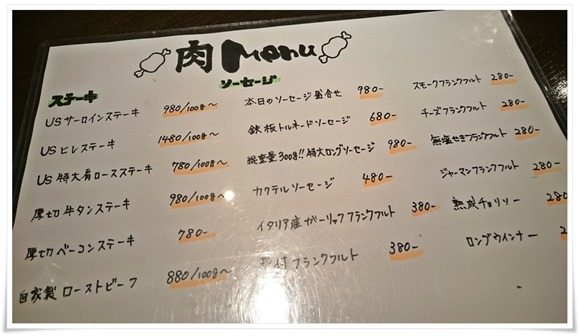 肉 Menu
ステーキ
USサーロインステーキ 980/100g〜
USヒレステーキ 1480/100g〜
US特大肩ロースステーキ 780/100g〜
厚切牛タンステーキ 980/100g〜
厚切ベーコンステーキ 780-
自家製ローストビーフ 880/100g〜
ソーセージ
本日のソーセージ盛合せ 980-
鉄板トルネードソーセージ 680-
総重量300g!!特大ロングソーセージ 980-
カクテルソーセージ 480-
イタリア産ガーリックフランクフルト 380-
付フランクフルト 380-
スモークフランクフルト 280-
チーズフランクフルト 280-
無塩せきフランクフルト 280-
ジャーマンフランクフルト 280-
熟成チョリソー 280
ロングウインナー